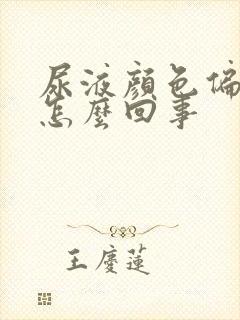 尿液顏色偏
怎麼回事
王慶蓮